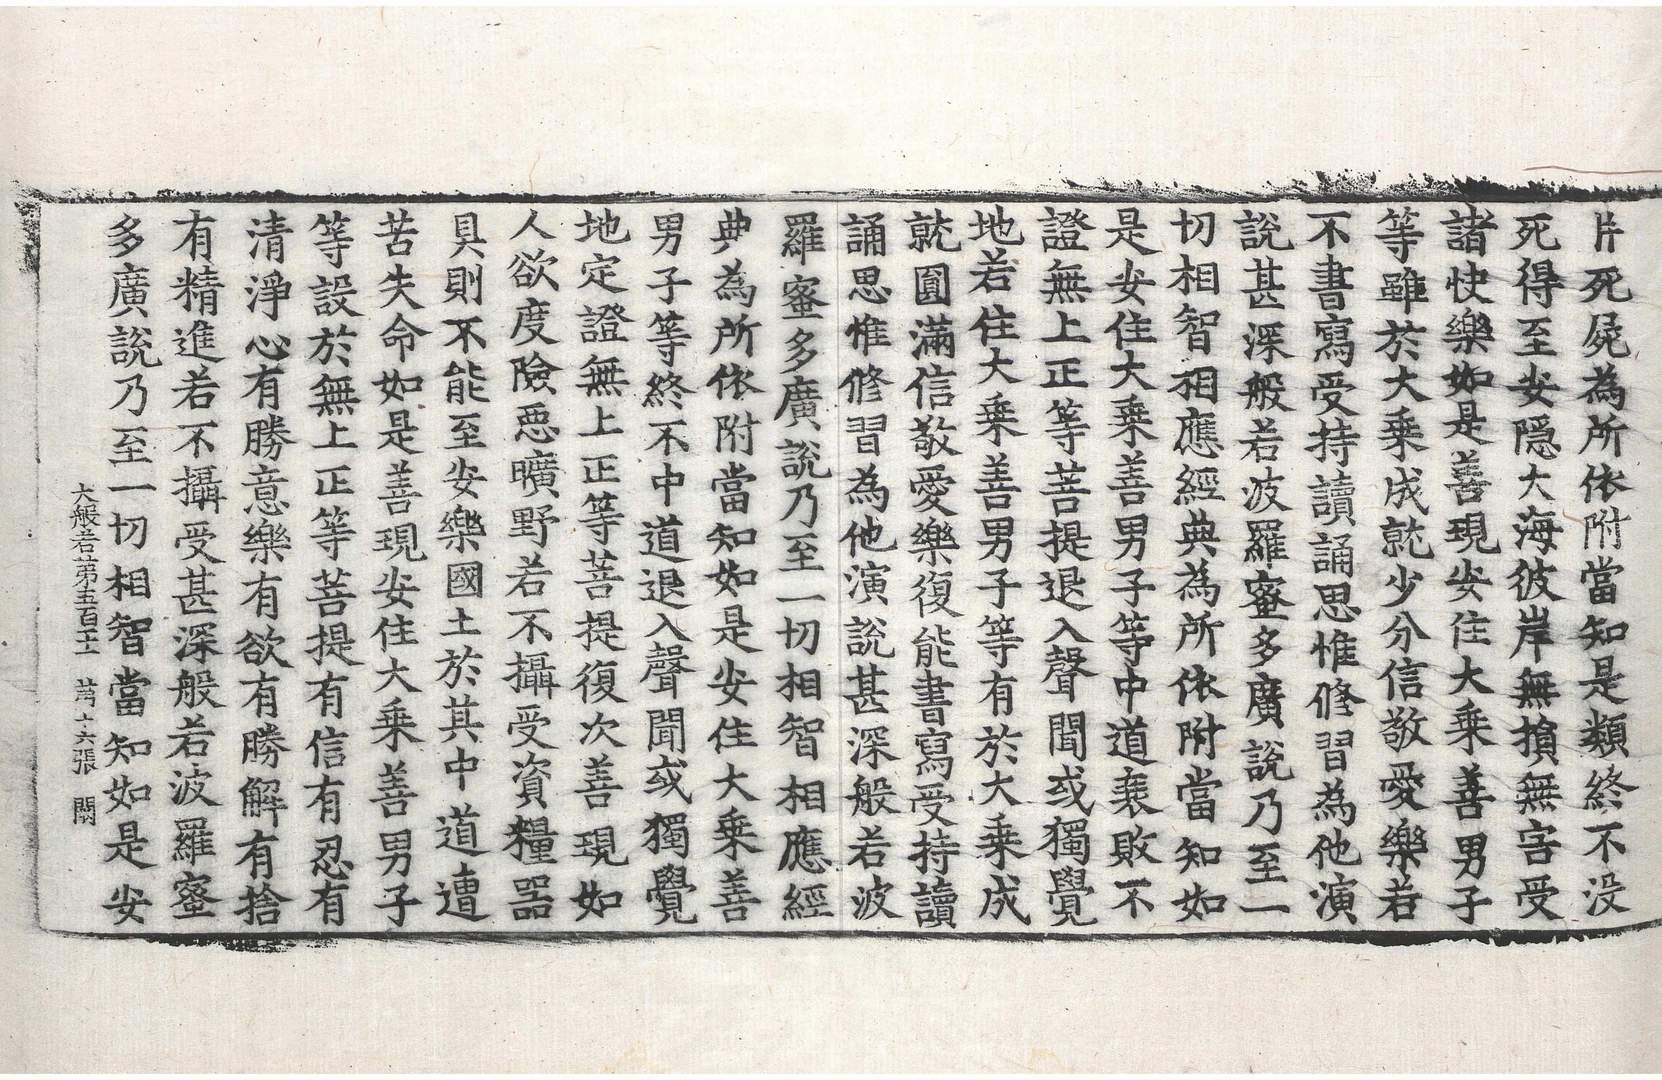 片死屍為所依附當知是類終不没
死得至安隠大海彼岸無損無害受
諸快樂如是善現安住大乗善男子
等雖於大乗成就少分信敬愛樂若
不書寫受持讀誦思惟修習為他演
說甚深般若波羅蜜多廣說乃至一
切相智相應經典為所依附當知如
是安住大乗善男子等中道衰敗不
證無上正等菩提退入聲聞或獨覺
地若住大乗善男子等有於大乗成
就圓滿信敬愛樂復能書寫受持讀
誦思惟修習為他演說甚深般若波
羅蜜多廣說乃至一切相智相應經
典為所依附當知如是安住大乗善
男子等終不中道退入聲聞或獨覺
地定證無上正等菩提復次善現如
人欲度險惡曠野若不攝受資糧器
具則不能至安樂國土於其中道遭
苦失命如是善現安住大乗善男子
等設於無上正等菩提有信有忍有
清淨心有勝意樂有欲有勝解有捨
有精進若不攝受甚深般若波羅蜜
多廣說乃至一切相智當知如是安
大般若第五百 六張